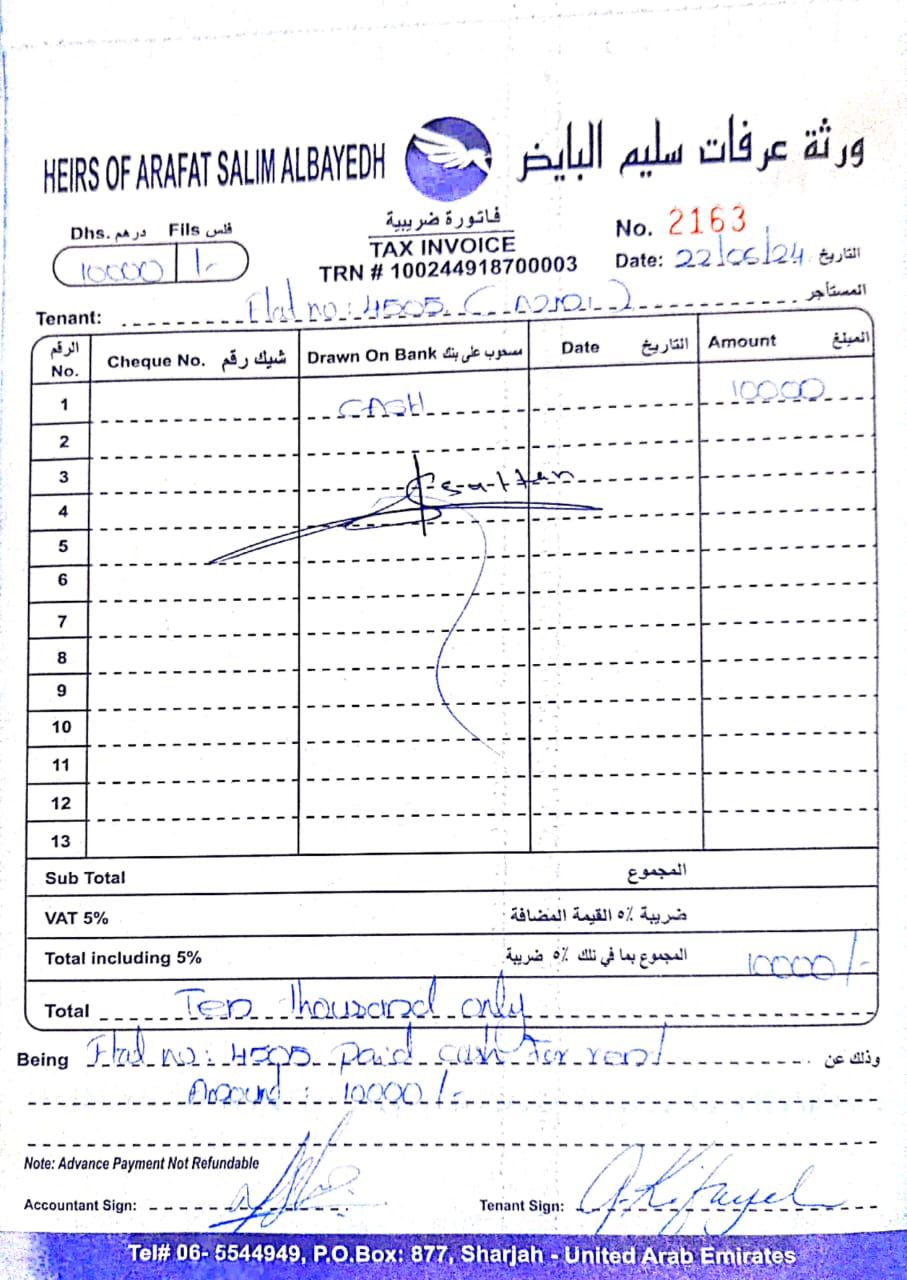 HEIRS OF ARAFAT SALIM ALBAYEDH ورثة عرفات سليم البايض
Dhs. درهم Fils فلس
10000 /-
فاتورة ضريبية
TAX INVOICE
TRN # 100244918700003
No. 2163
Date: 22/06/24 التاريخ
Tenant: Flat no: 4505 المستأجر
الرقم No. Cheque No. شيك رقم Drawn On Bank مسحوب على بنك Date التاريخ Amount المبلغ
1 CASH 10000
2
3 sultan
4
5
6
7
8
9
10
11
12
13
Sub Total المجموع
VAT 5% ضريبة ٥٪ القيمة المضافة
Total including 5% المجموع بما في تلك ٥٪ ضريبة 10000/-
Total Ten thousand only
Being Flat no: 4505 paid cash for rent وذلك عن
Amound : 10000/-
Note: Advance Payment Not Refundable
Accountant Sign: Tenant Sign:
Tel# 06- 5544949, P.O.Box: 877, Sharjah - United Arab Emirates